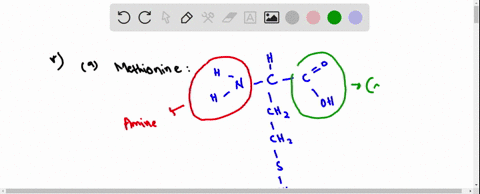 r) (a) Methionine :
H O
H N - C - C = O
H OH
CH2
Amine
CH2
S